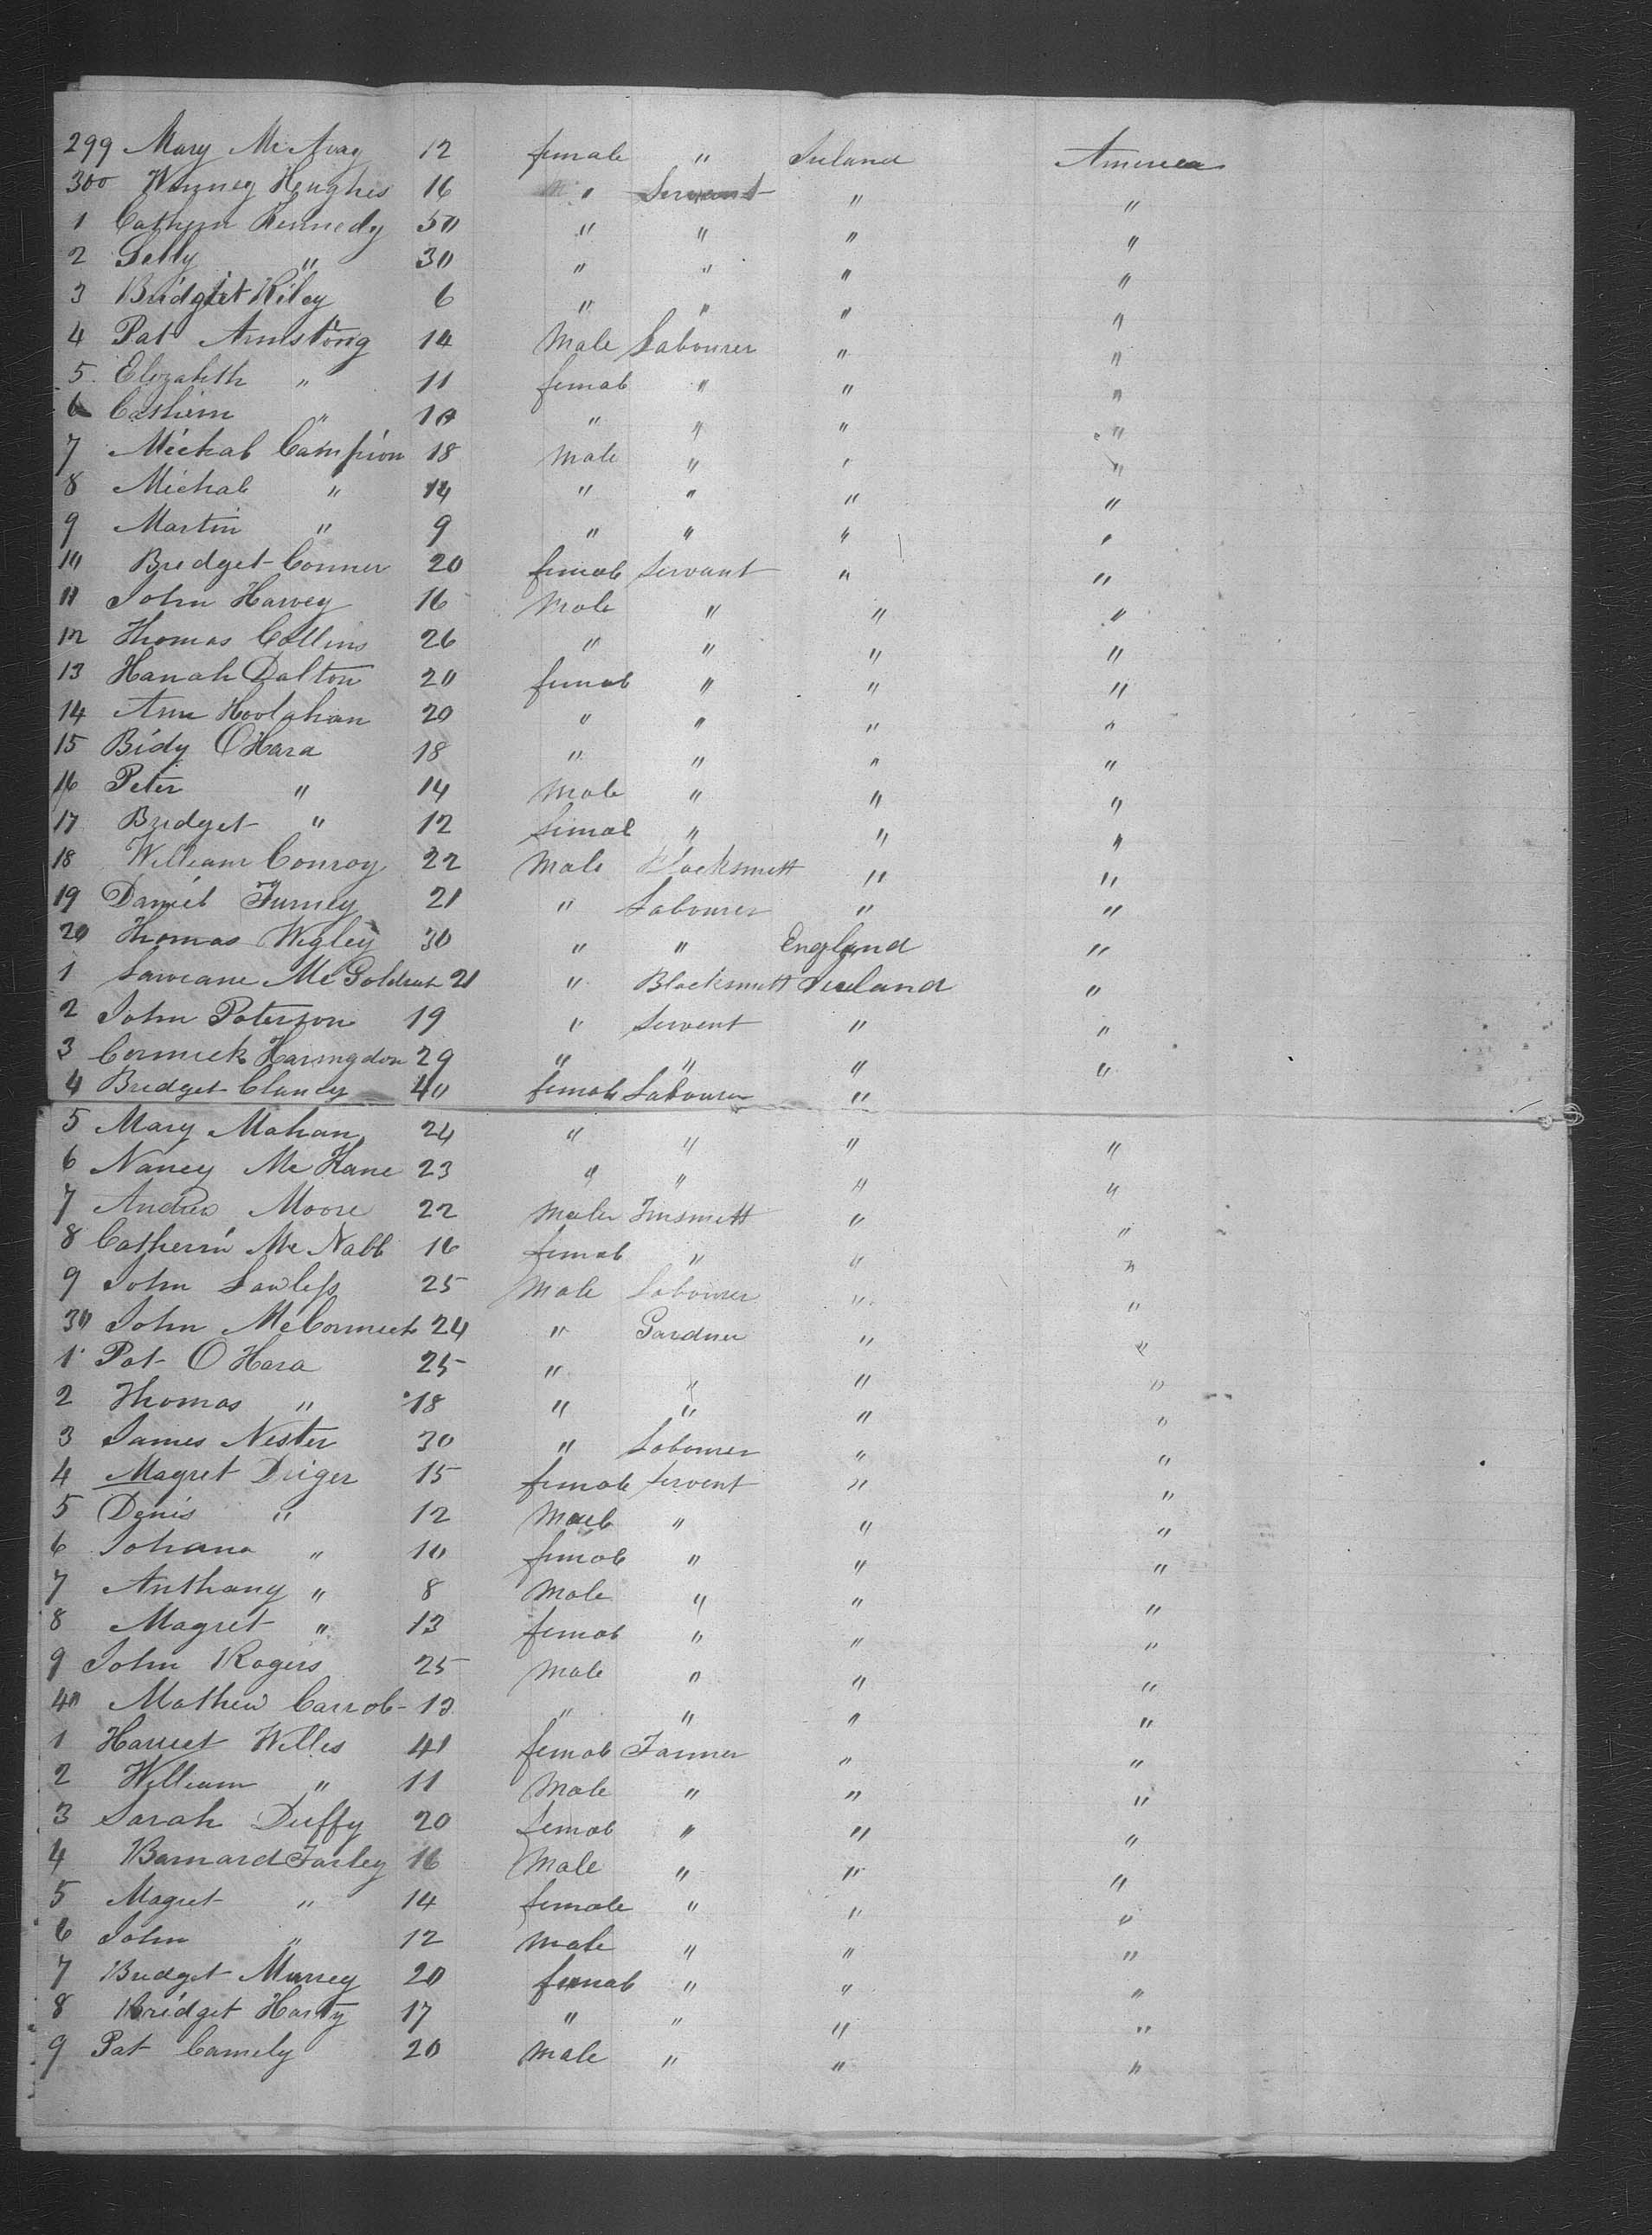 299 Mary McAvay 12 female " Ireland America
300 Winney Hughes 16 " Servant " "
1 Cathern Kennedy 50 " " " "
2 Selly " 30 " " " "
3 Bridget Riley 6 " " " "
4 Pat Armstong 14 Male Labourer " "
5 Elizabeth " 11 female " " "
6 Cathern " 10 " " " "
7 Michal Campion 18 Male " " "
8 Michal " 14 " " " "
9 Martin " 9 " " " "
10 Bridget Conner 20 female Servant " "
11 John Harvey 16 Male " " "
12 Thomas Collins 26 " " " "
13 Hanah Dalton 20 female " " "
14 Ann Hoolahan 20 " " " "
15 Bidy O Hara 18 " " " "
16 Peter " 14 Male " " "
17 Bridget " 12 female " " "
18 William Conroy 22 Male Blacksmith " "
19 Daniel Furney 21 " Labourer " "
20 Thomas Wigley 30 " " England "
1 21 " Blacksmith Ireland "
2 John Paterson 19 " Servent " "
3 Cormick Haringdon 29 " " " "
4 Bridget Clancy 40 female Labourer "
5 Mary Mahan 24 " " " "
6 Nancy Mc Kane 23 " " " "
7 Andrew Moore 22 Male Tinsmith " "
8 Catherin Mc Nabb 16 female " " "
9 John Lawless 25 Male Labourer " "
30 John McCormick 24 " Gardner " "
1 Pat O Hara 25 " " " "
2 Thomas " 18 " " " "
3 James Nester 30 " Labourer " "
4 Magret Driger 15 female Servent " "
5 Denis " 12 Male " " "
6 Johana " 10 female " " "
7 Anthany " 8 Male " " "
8 Magret " 13 female " " "
9 John Rogers 25 Male " " "
40 Mathew Carrol 13 " " " "
1 Harriet Willis 41 female Farmer " "
2 William " 11 Male " " "
3 Sarah Duffy 20 female " " "
4 Barnard Farley 16 Male " " "
5 Magret " 14 female " " "
6 John " 12 Male " " "
7 Bridget Murrey 20 female " " "
8 Bridget Harty 17 " " " "
9 Pat Camely 20 Male " " "